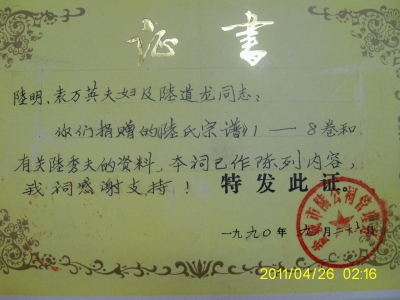 证书
陸明、袁万英夫妇及陸道龙同志：
你们捐赠的陸氏宗谱《1——8卷和
有关陸秀夫的资料，本祠已作陈列内容，
我祠感谢支持！特发此证。
一九九○年九月二十
2011/04/26 02:16